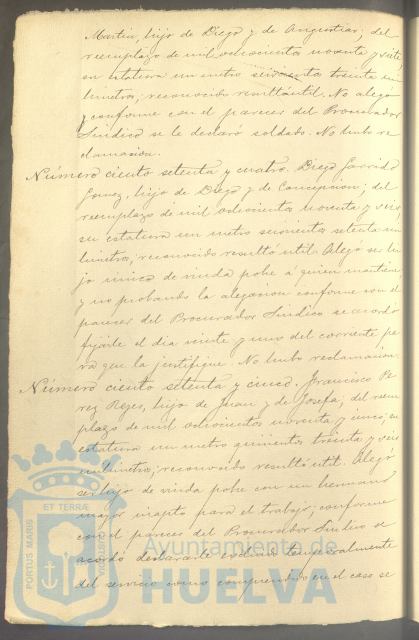 Martin, hijo de Diego y de Angustias; del
reemplazo de mil ochocientos noventa y siete,
su estatura un metro seiscientos treinta mi
límetros; reconocido resultó útil. No alegó
y conforme con el parecer del Procurador
Síndico se le declaró soldado. No hubo re
clamacion.
Número ciento setenta y cuatro. Diego Garrido
Gomez, hijo de Diego y de Concepcion; del
reemplazo de mil ochocientos noventa y seis,
su estatura un metro seiscientos setenta mi
límetros; reconocido resultó útil. Alegó ser hi
jo único de viuda pobre á quien mantiene
y no probando la alegacion conforme con el
parecer del Procurador Síndico se acordó
fijarle el dia veinte y uno del corriente pa
ra que la justifique. No hubo reclamacion.
Número ciento setenta y cinco. Francisco Pe
rez Reyes, hijo de Juan y de Josefa; del reem
plazo de mil ochocientos noventa y seis; su
estatura un metro quinientos treinta y seis
milímetros; reconocido resultó útil. Alegó
ser hijo de viuda pobre con un hermano
mayor inapto para el trabajo; conforme
con el parecer del Procurador Síndico se
acordó declararle excluido temporalmente
del servicio como comprendido en el caso se
PORTUS MARIS
ET TERRÆ
Ayuntamiento de
HUELVA